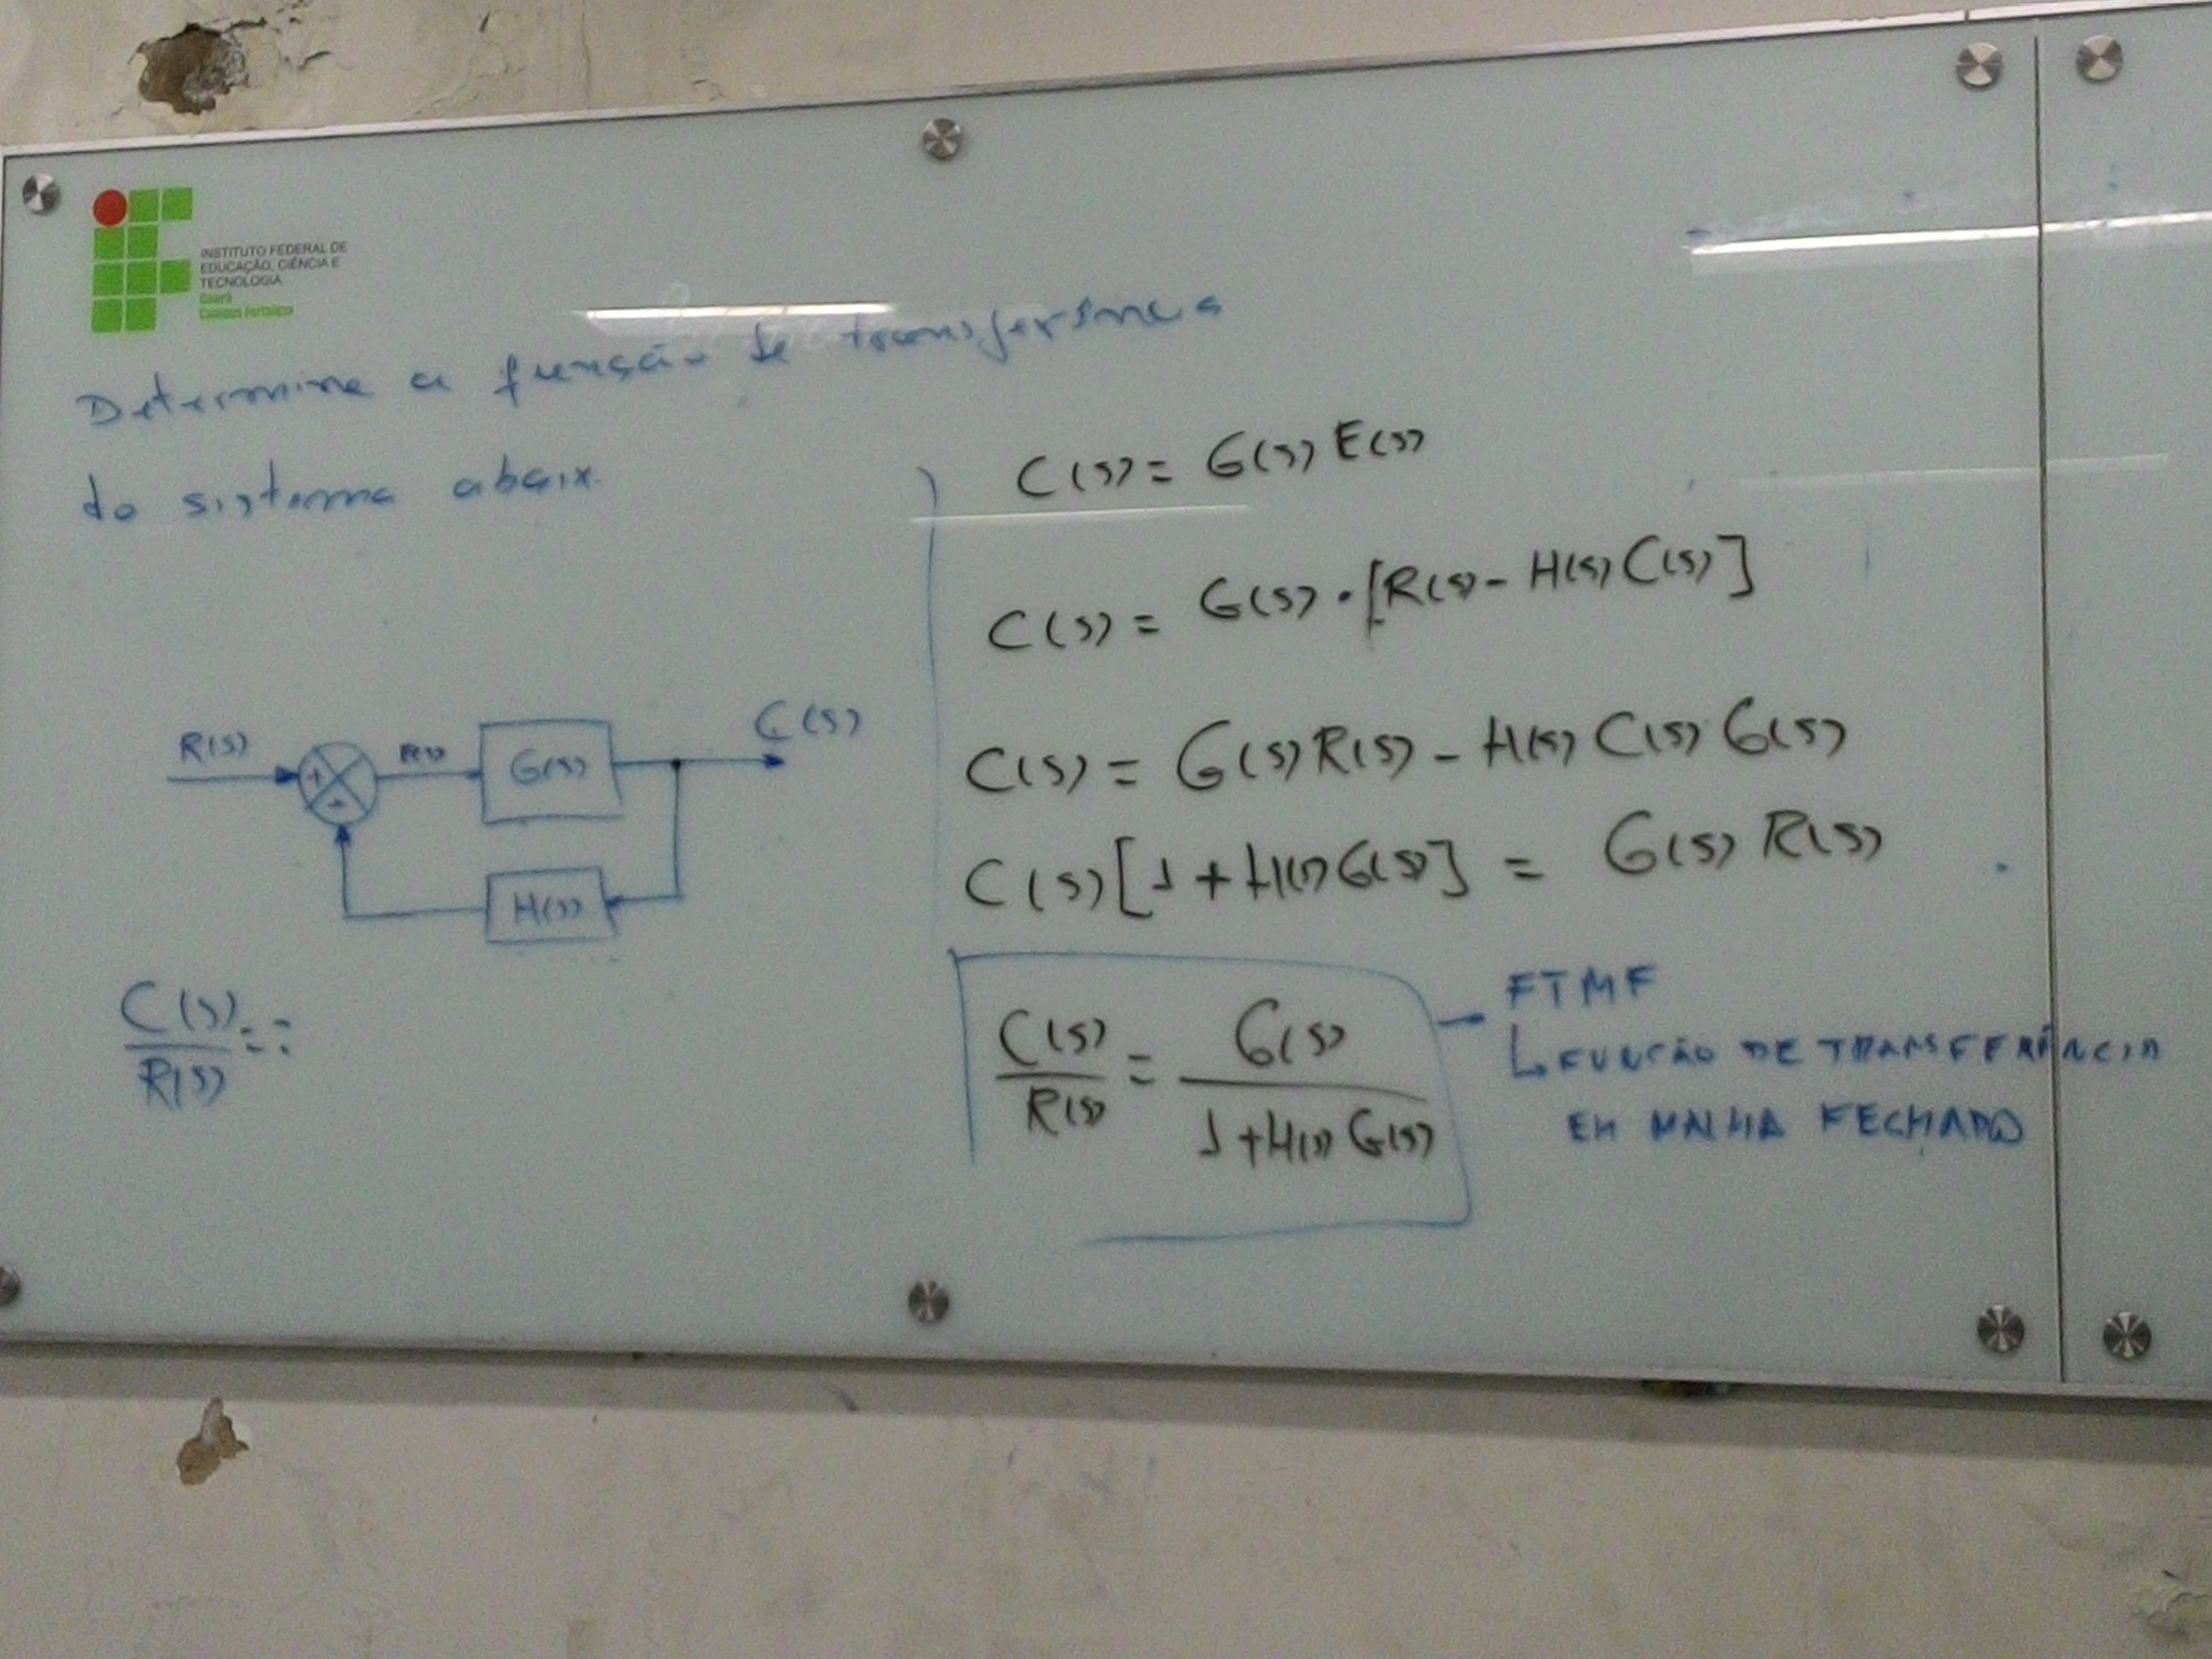 INSTITUTO FEDERAL DE
EDUCAÇÃO, CIÊNCIA E
TECNOLOGIA
Ceará
Campus Fortaleza
Determine a função de transferência
do sistema abaix.
R(s)
+
G(s)
C(s)
H(s)
C(s)/R(s) = :
C(s) = G(s) E(s)
C(s) = G(s) · [R(s) - H(s) C(s)]
C(s) = G(s) R(s) - H(s) C(s) G(s)
C(s) [1 + H(s) G(s)] = G(s) R(s)
C(s)/R(s) = G(s)/1 + H(s) G(s)
FTMF
FUNÇÃO DE TRANSFERÊNCIA
EM MALHA FECHADO